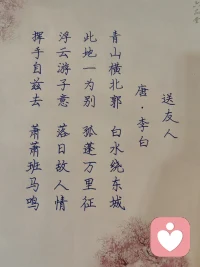 送友人
唐·李白
青山横北郭 白水绕东城
此地一为别 孤蓬万里征
浮云游子意 落日故人情
挥手自兹去 萧萧班马鸣